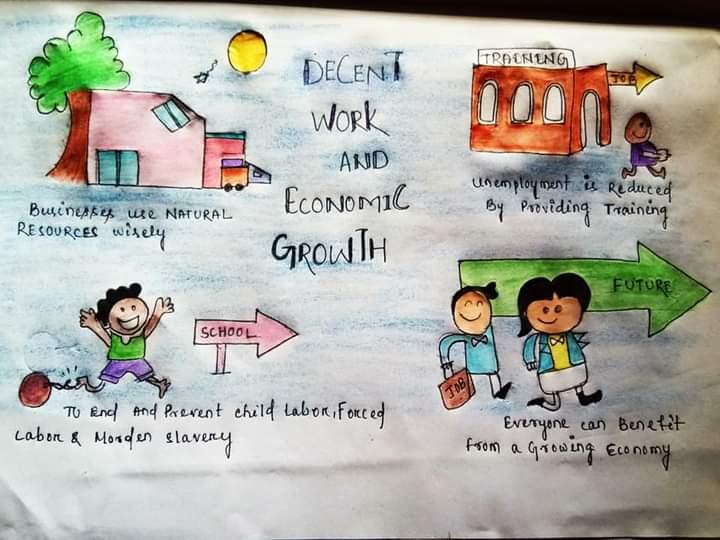 DECENT
WORK
AND
ECONOMIC
GROWTH
Businesses use NATURAL
RESOURCES wisely
TRAINING
JOB
Unemployment is Reduced
By Providing Training
SCHOOL
To End And Prevent child Labor, Forced
Labor & Morden slavery
FUTURE
JOB
Everyone can Benefit
from a Growing Economy